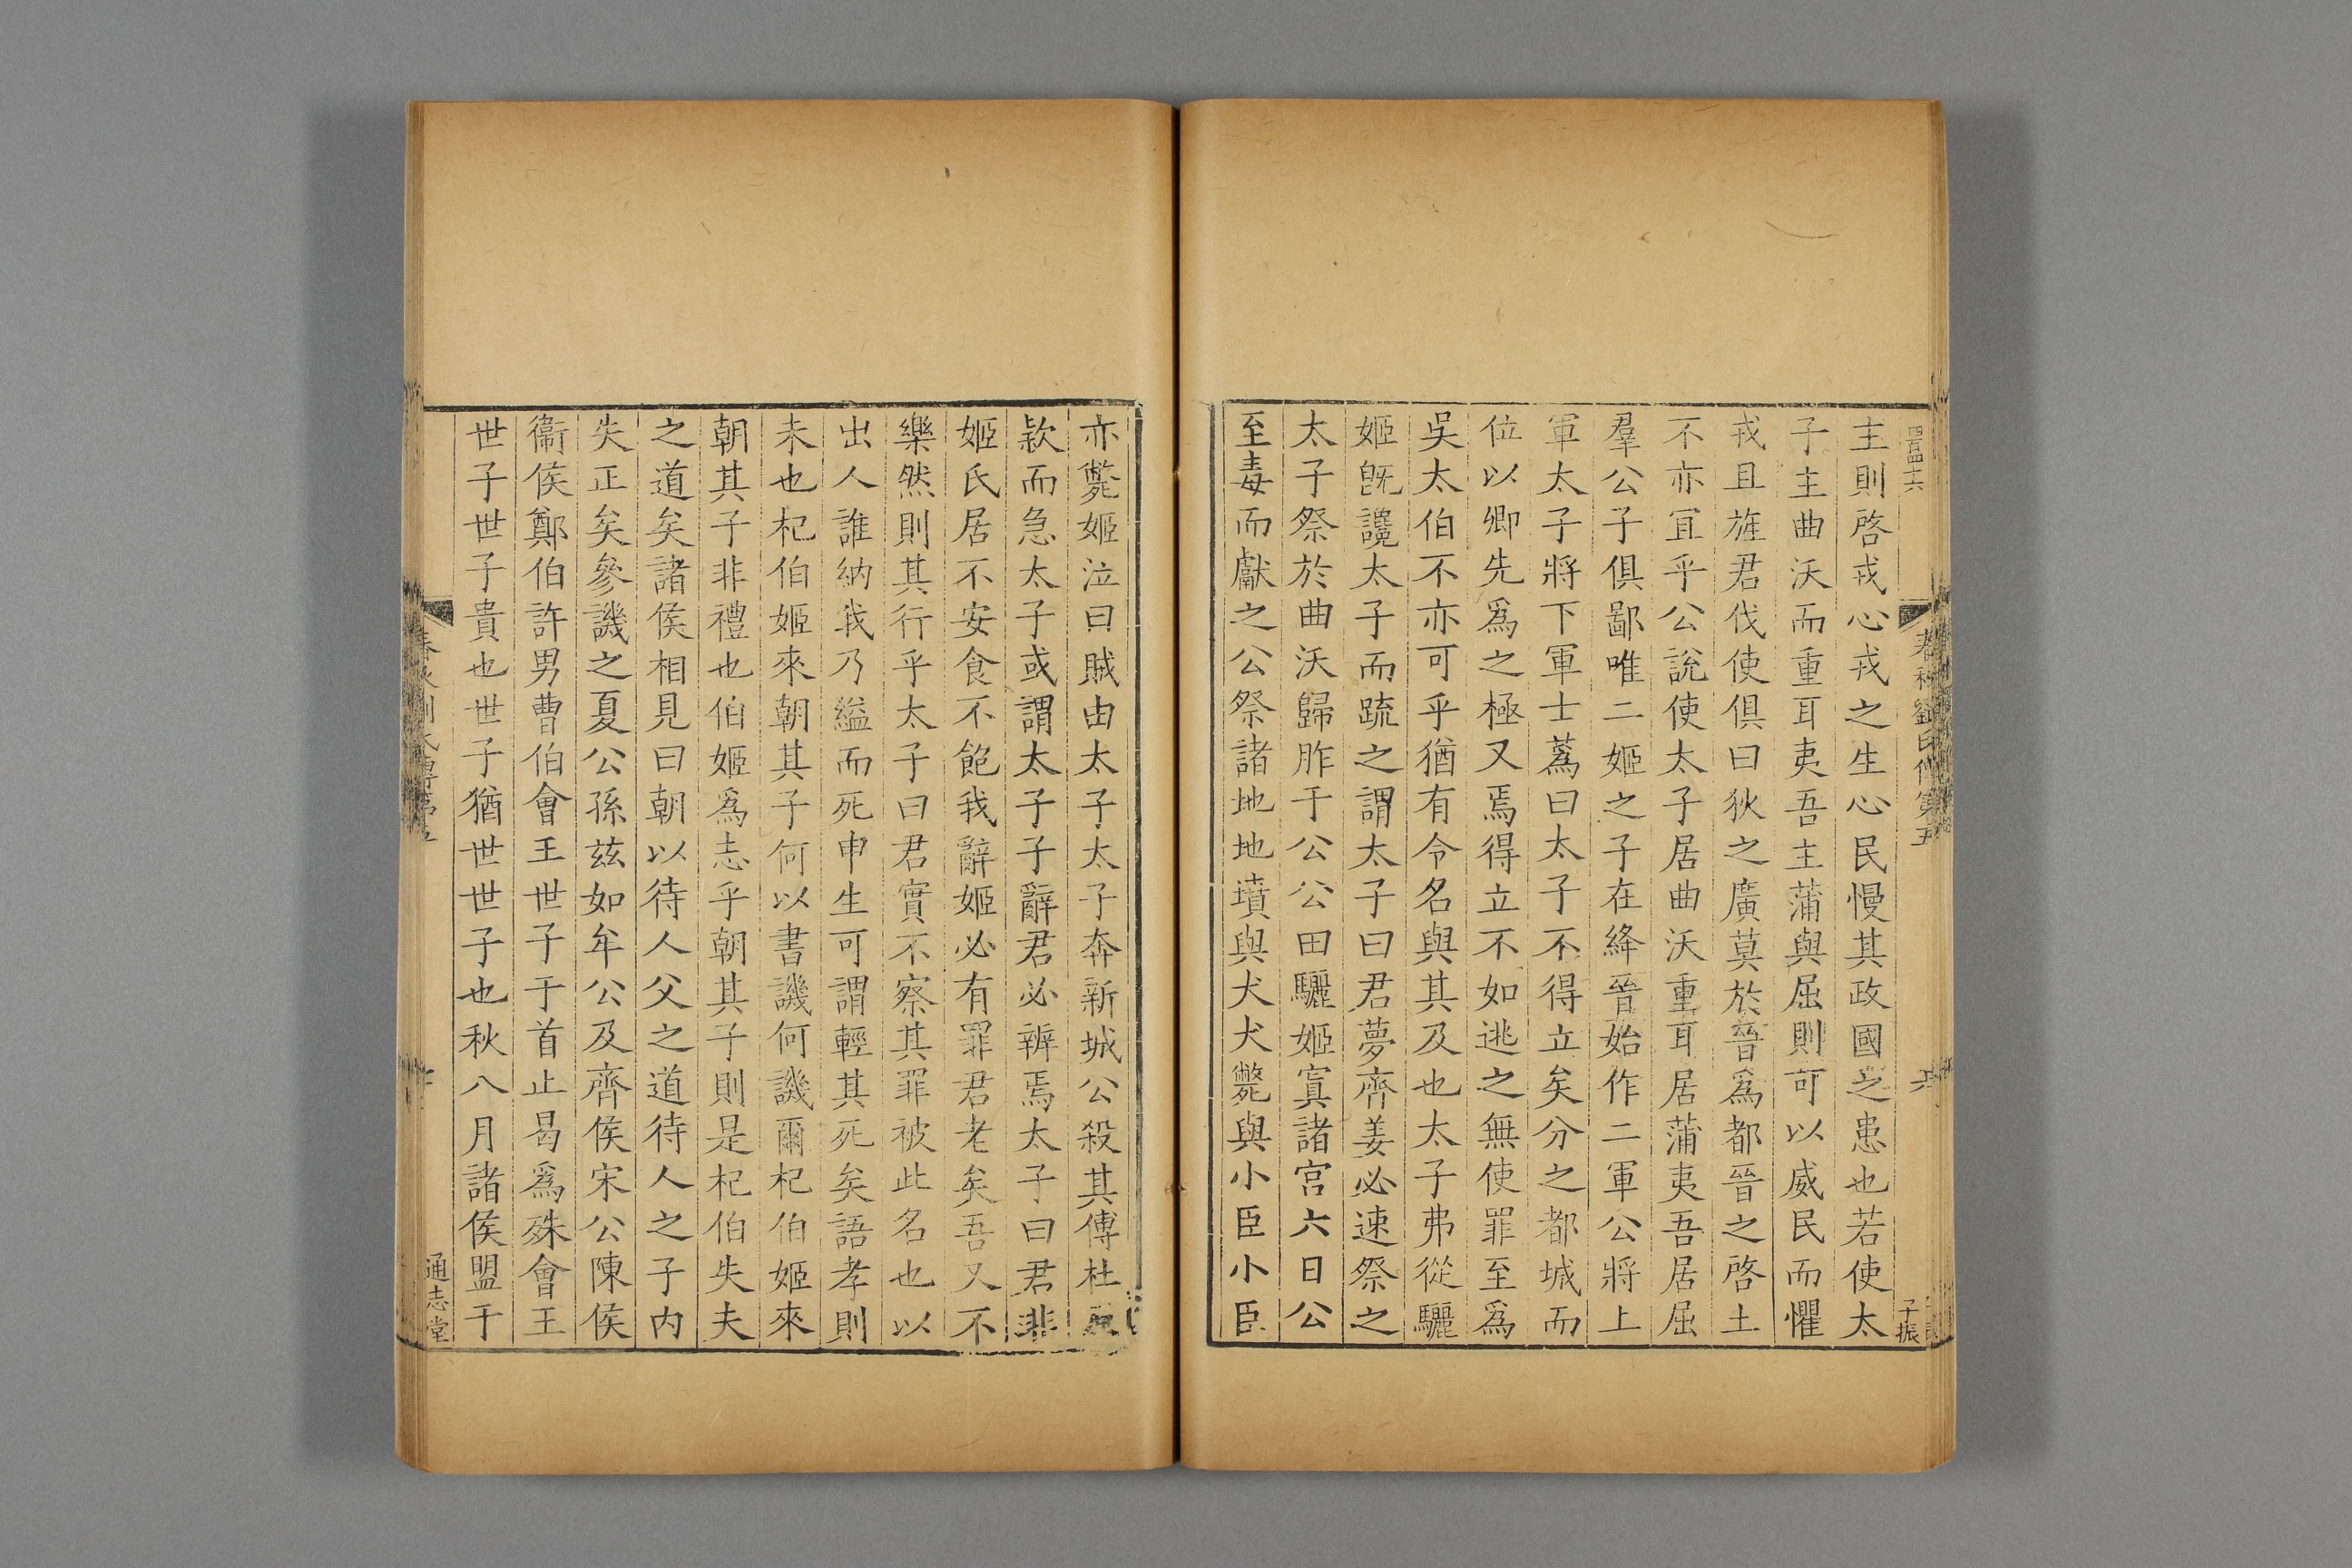 四百四十六
春秋劉氏傳第五
六
子振
主則啓戎心戎之生心民慢其政國之患也若使太
子主曲沃而重耳夷吾主蒲與屈則可以威民而懼
戎且旌君伐使俱曰狄之廣莫於晉爲都晉之啓土
不亦宜乎公說使太子居曲沃重耳居蒲夷吾居屈
羣公子俱鄙唯二姬之子在絳晉始作二軍公將上
軍太子將下軍士蒍曰太子不得立矣分之都城而
位以卿先爲之極又焉得立不如逃之無使罪至爲
吳太伯不亦可乎猶有令名與其及也太子弗從驪
姬旣讒太子而疏之謂太子曰君夢齊姜必速祭之
太子祭於曲沃歸胙于公公田驪姬寘諸宮六日公
至毒而獻之公祭諸地地墳與犬犬斃與小臣小臣
亦斃姬泣曰賊由太子太子奔新城公殺其傅杜原
款而急太子或謂太子子辭君必辨焉太子曰君非
姬氏居不安食不飽我辭姬必有罪君老矣吾又不
樂然則其行乎太子曰君實不察其罪被此名也以
出人誰納我乃縊而死申生可謂輕其死矣語孝則
未也杞伯姬來朝其子何以書譏何譏爾杞伯姬來
朝其子非禮也伯姬爲志乎朝其子則是杞伯失夫
之道矣諸侯相見曰朝以待人父之道待人之子内
失正矣參譏之夏公孫茲如牟公及齊侯宋公陳侯
衞侯鄭伯許男曹伯會王世子于首止曷爲殊會王
世子世子貴也世子猶世世子也秋八月諸侯盟于
春秋劉氏傳第五
通志堂